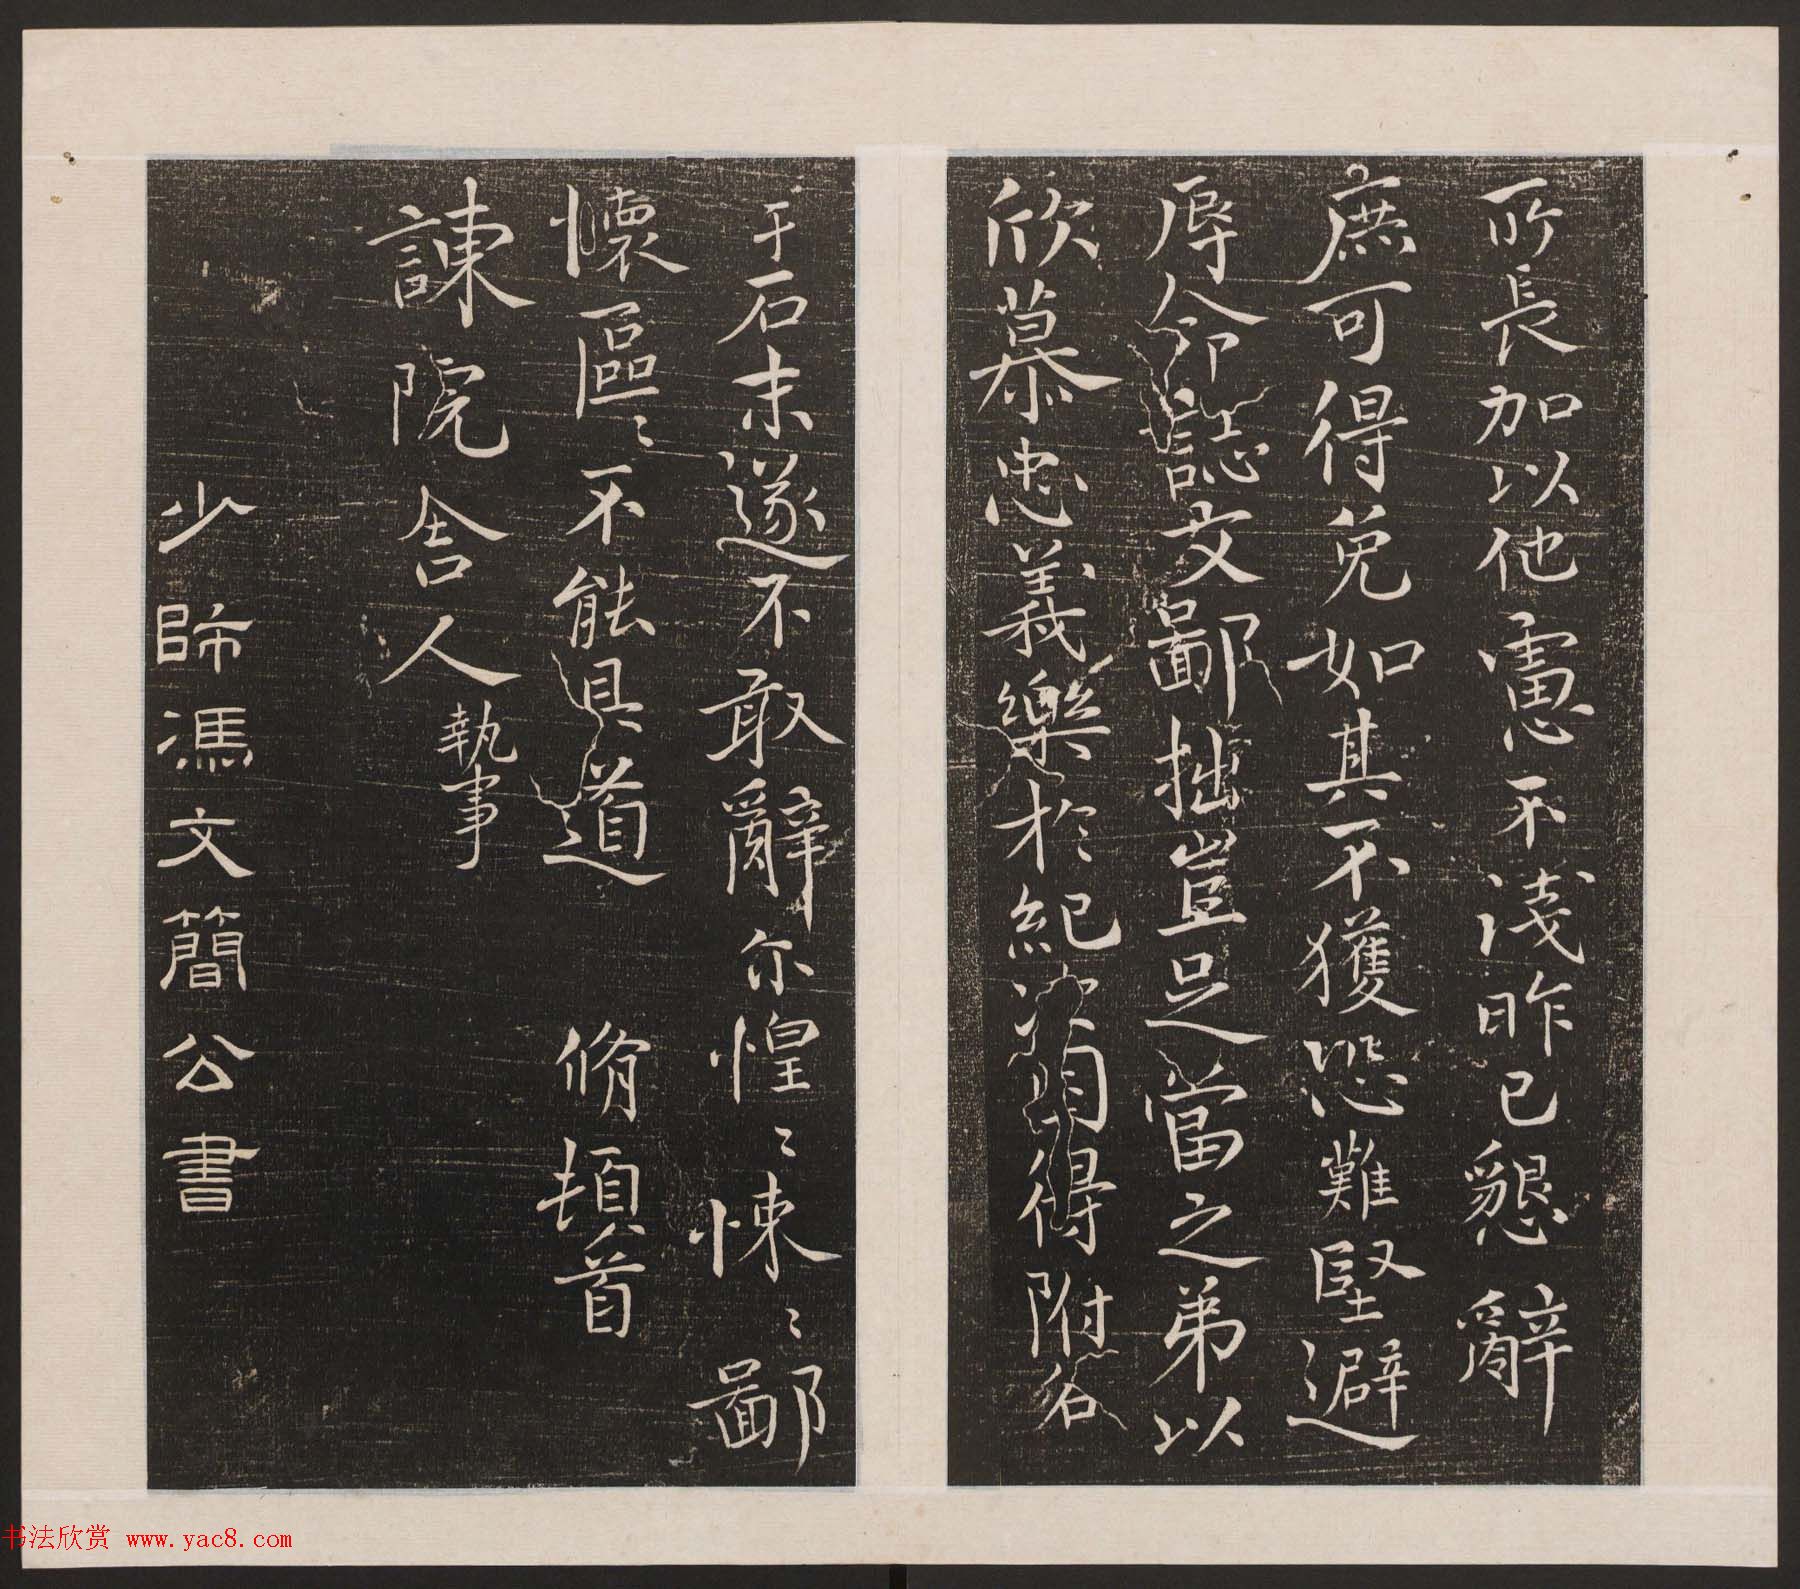 所長加以他慮不淺昨已懇辭
庶可得免如其不獲恐難堅避
辱命誌文鄙拙豈足當之弟以
欣慕忠義樂於紀次得附名
于石未遂不敢辭尔惶〻悚〻鄙
懷區〻不能具道 脩頓首
諫院舍人執事
少師馮文簡公書
书法欣赏 www.yac8.com